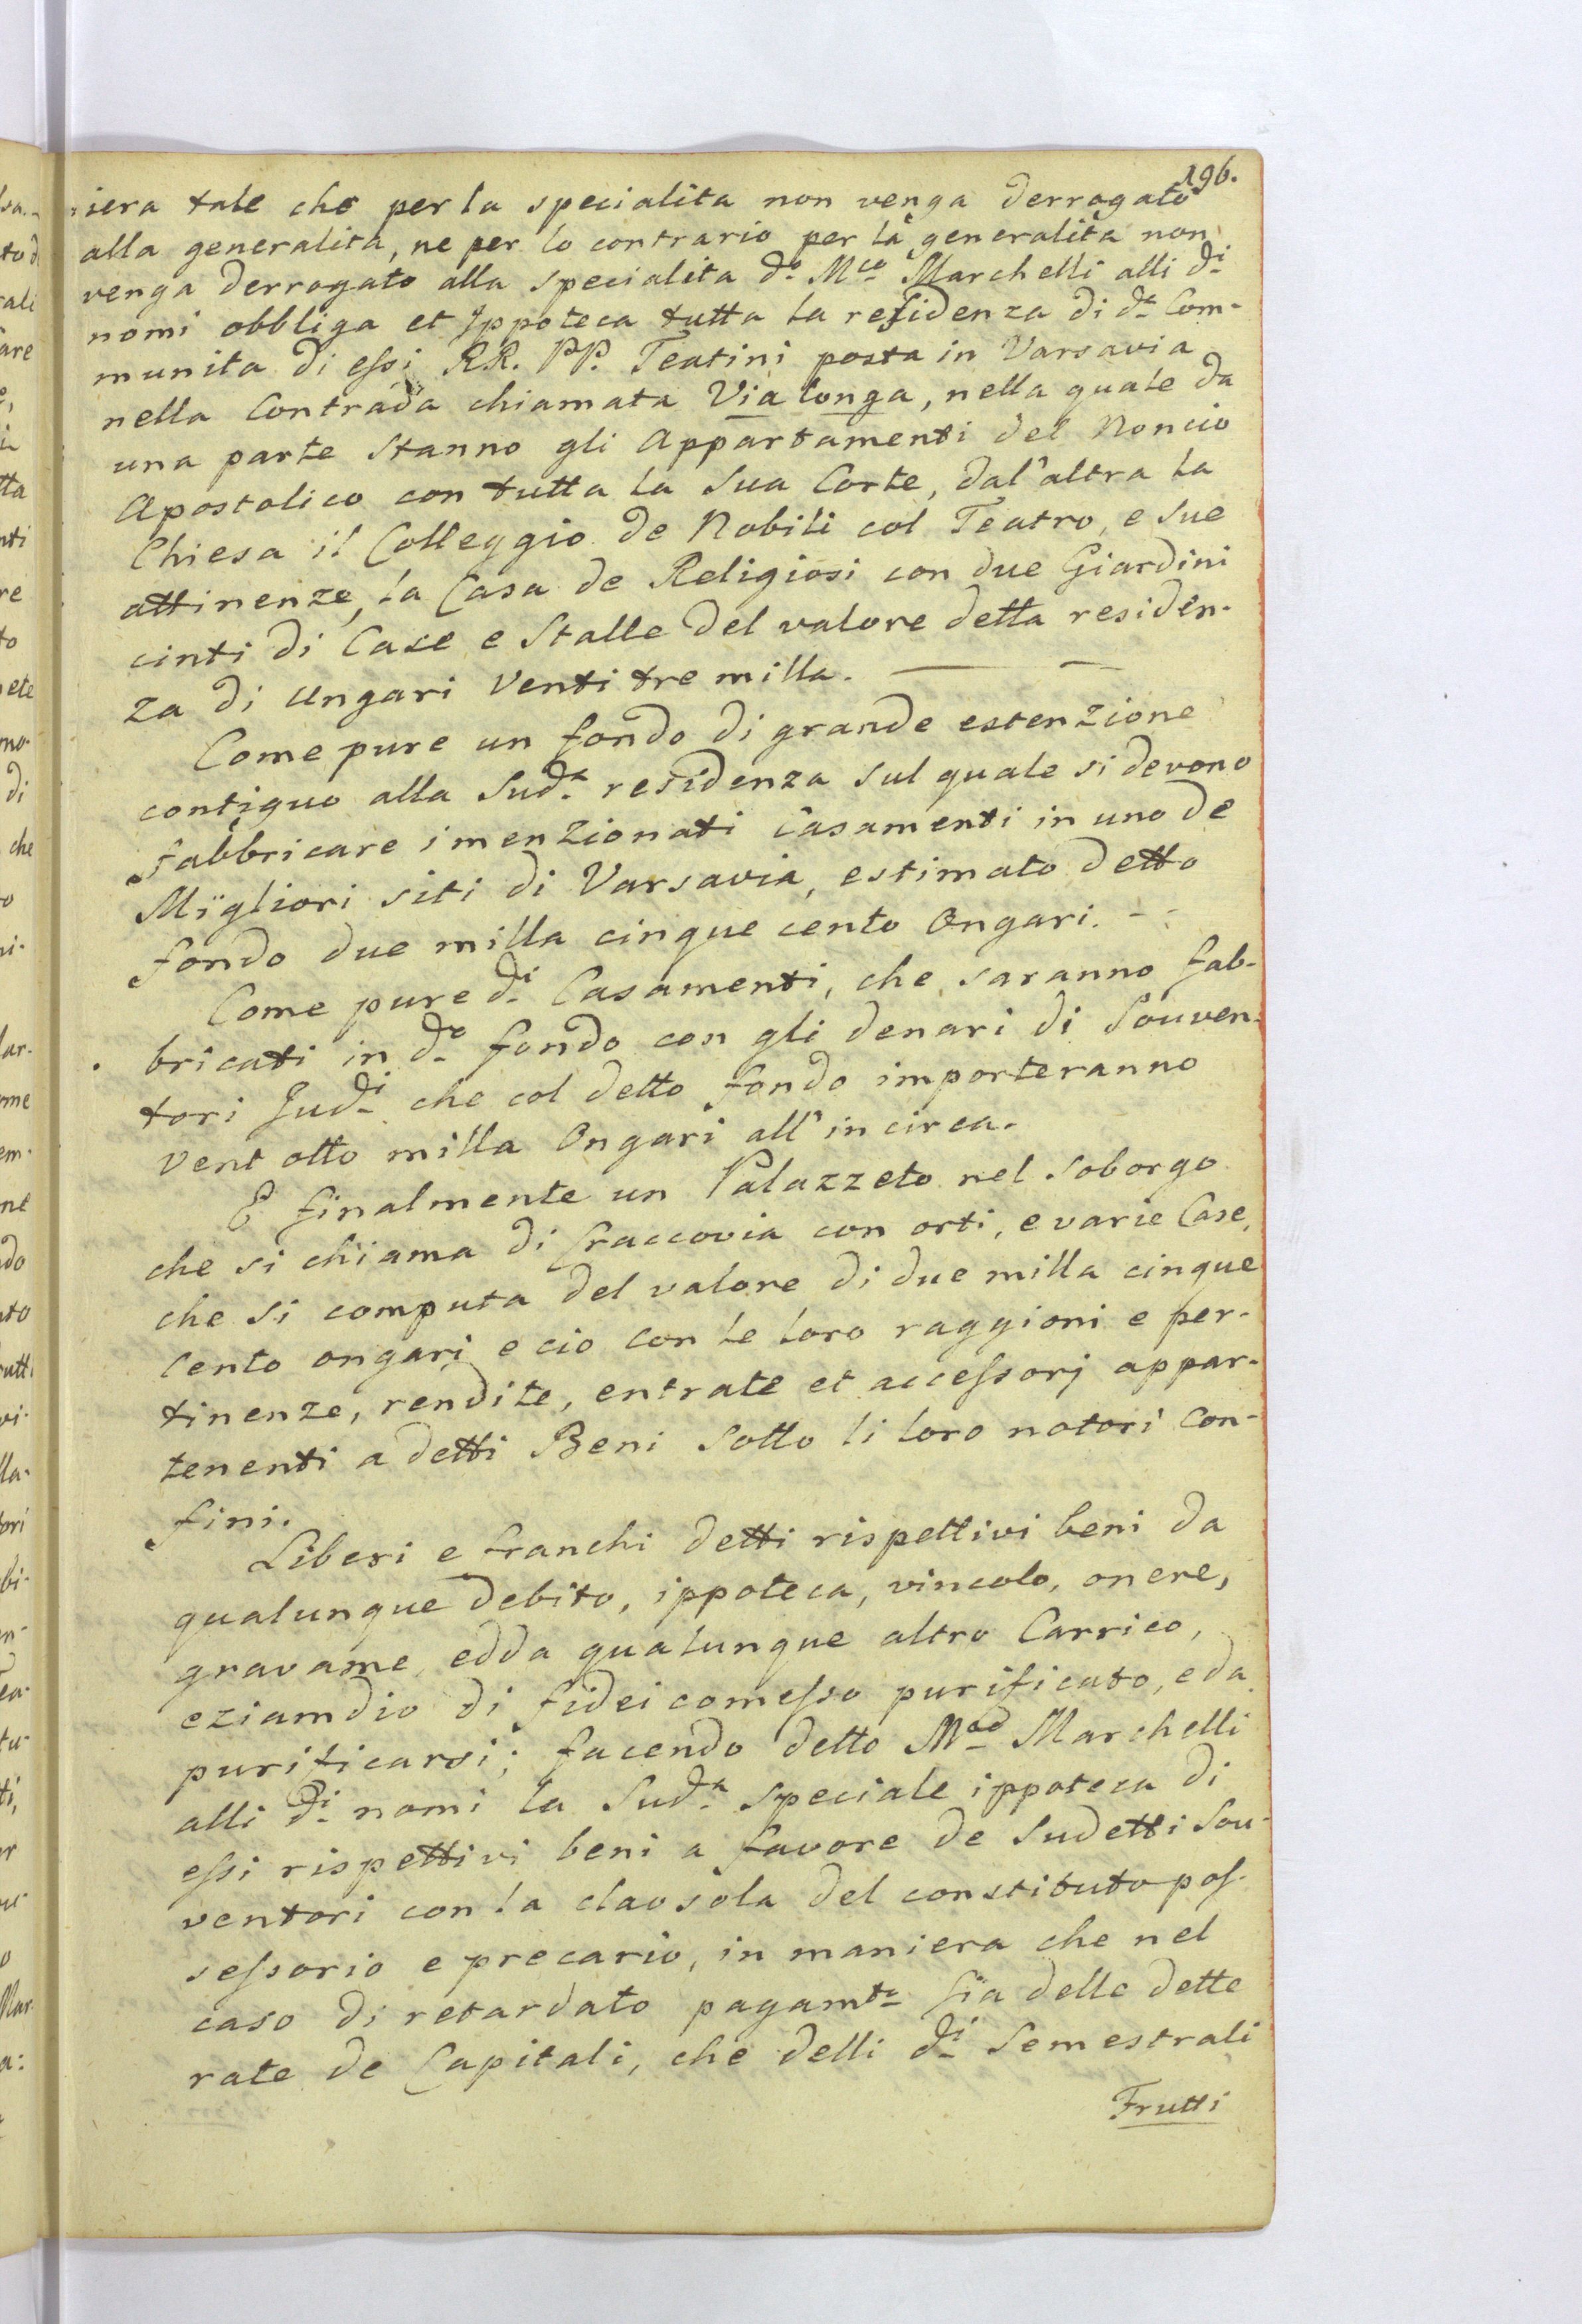 196.
niera tale che per la specialita non venga derrogato
alla generalita, ne per lo contrario per la generalita non
venga derrogato alla specialita d.o M.co Marchelli alli d.i
nomi obbliga et Ippoteca tutta la residenza di d.a Com-
munita di essi RR. PP. Teatini posta in Varsavia
nella Contrada chiamata Via longa, nella quale da
una parte stanno gli Appartamenti del Noncio
Apostolico con tutta la Sua Corte, dal'altra la
Chiesa il Colleggio de Nobili col Teatro, e sue
attinenze, la Casa de Religiosi con due Giardini
cinti di Case e Stalle del valore detta residen-
za di Ungari Venti tre milla.
Come pure un fondo di grande estenzione
contiguo alla Sud.a residenza sul quale si devono
fabbricare i menzionati Casamenti in uno de
Migliori siti di Varsavia, estimato detto
fondo due milla cinque cento Ongari.
Come pure d.i Casamenti, che saranno fab-
bricati in d.o fondo con gli denari di Souven-
tori Sud.i che col detto fondo importeranno
vent otto milla Ongari all'in circa.
E finalmente un Palazzeto nel soborgo
che si chiama di Craccovia con orti, e varie Case,
che si computa del valore di due milla cinque
Cento ongari e cio con le loro raggioni e per-
tinenze, rendite, entrate et accessorj appar-
tenenti a detti Beni sotto li loro notori con-
fini.
Liberi e franchi detti rispettivi beni da
qualunque debito, ippoteca, vincolo, onere,
gravame, edda qualunque altro Carrico,
eziamdio di fideicomesso purificato, e da
purificarsi; facendo detto M.co Marchelli
alli d.i nomi la Sud.a speciale ippoteca di
essi rispettivi beni a favore de Sudetti Sou-
ventori con la clausola del constituto pos-
sessorio e precario, in maniera che nel
caso di retardato pagam.to sia delle dette
rate de Capitali, che delli d.i Semestrali
Frutti